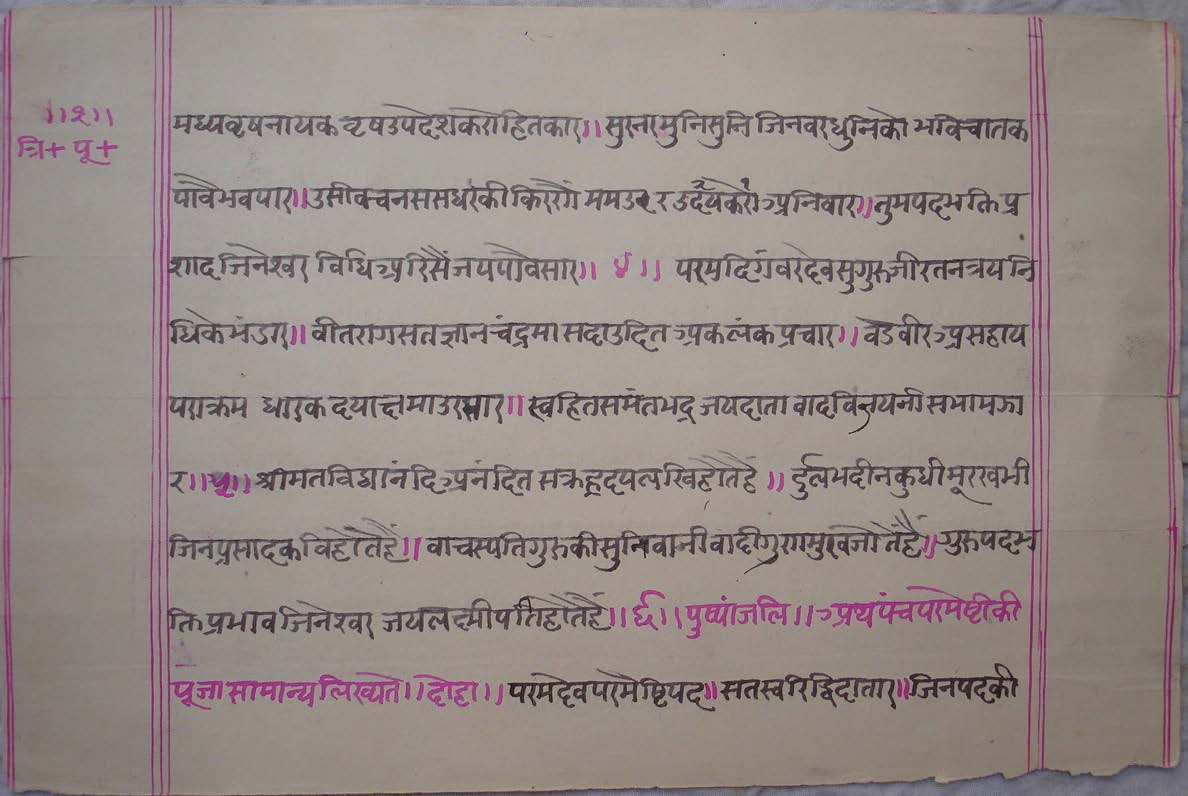 ॥२॥
त्रि+ पू+
मध्यवृषनायक वृषउपदेशकरोहितकार॥ सुरनरमुनिसुनि जिनवरधुनिको भविचातक
पावैभवपार॥उसीवचनससधरकी किररौं ममउर उदयकरो अनिवार॥तुमपदभक्ति प्र
शादजिनेश्वर विधिअरिसैं जयपावैसार॥ ४ ॥ परमदिगंवरदेवसुगुरुजीरतनत्रयनि
धिकेभंडार॥ वीतरागसतज्ञानचंद्रमा सदाउदित अकलंकप्रचार॥ वडेवीर असहाय
पराक्रम धारक दयाक्षमाउरधार॥ स्वहितसमंतभद्र जयदाता वादविजयनी सभामझा
र॥५॥ श्रीमतविद्यानंदि अनंदित सकहृदयलखिहोतेहैं॥ र्दुलभदीनकुधीमूरखभी
जिनप्रसादकविहोतेहैं॥ वाचस्पतिगुरुकीसुनिवानी वादीगुरगमुखजोतेहैं॥गुरुपदभ
क्तिप्रभावजिनेश्वर जयलक्ष्मीपतिहोतेहैं॥६॥पुष्पांजलि॥अथपंचपरमेष्टीकी
पूजासामान्यलिख्यते॥दोहा॥ परमदेवपरमेष्टिपद॥सतस्वरिद्धिदातार॥जिनपदकी